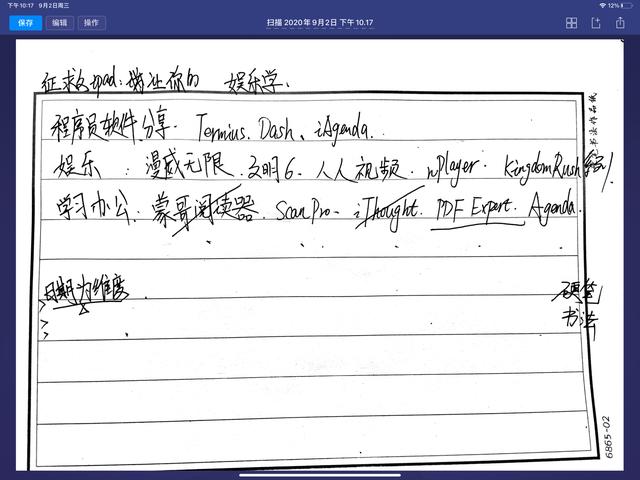 下午10:17 9月2日周三
12%
保存 编辑 操作
扫描 2020年9月2日 下午10.17
征求ipad: 娱乐学.
程序员软件分享. Termius. Dash、iAgenda.
娱乐. 漫威无限. 文明6. 人人视频. nPlayer. KingdomRush
学习办公. 蒙哥阅读器. ScanPro、iThought. PDF Expert. Agenda.
日期为维度.
硬笔
书法
书法作品纸
6865-02